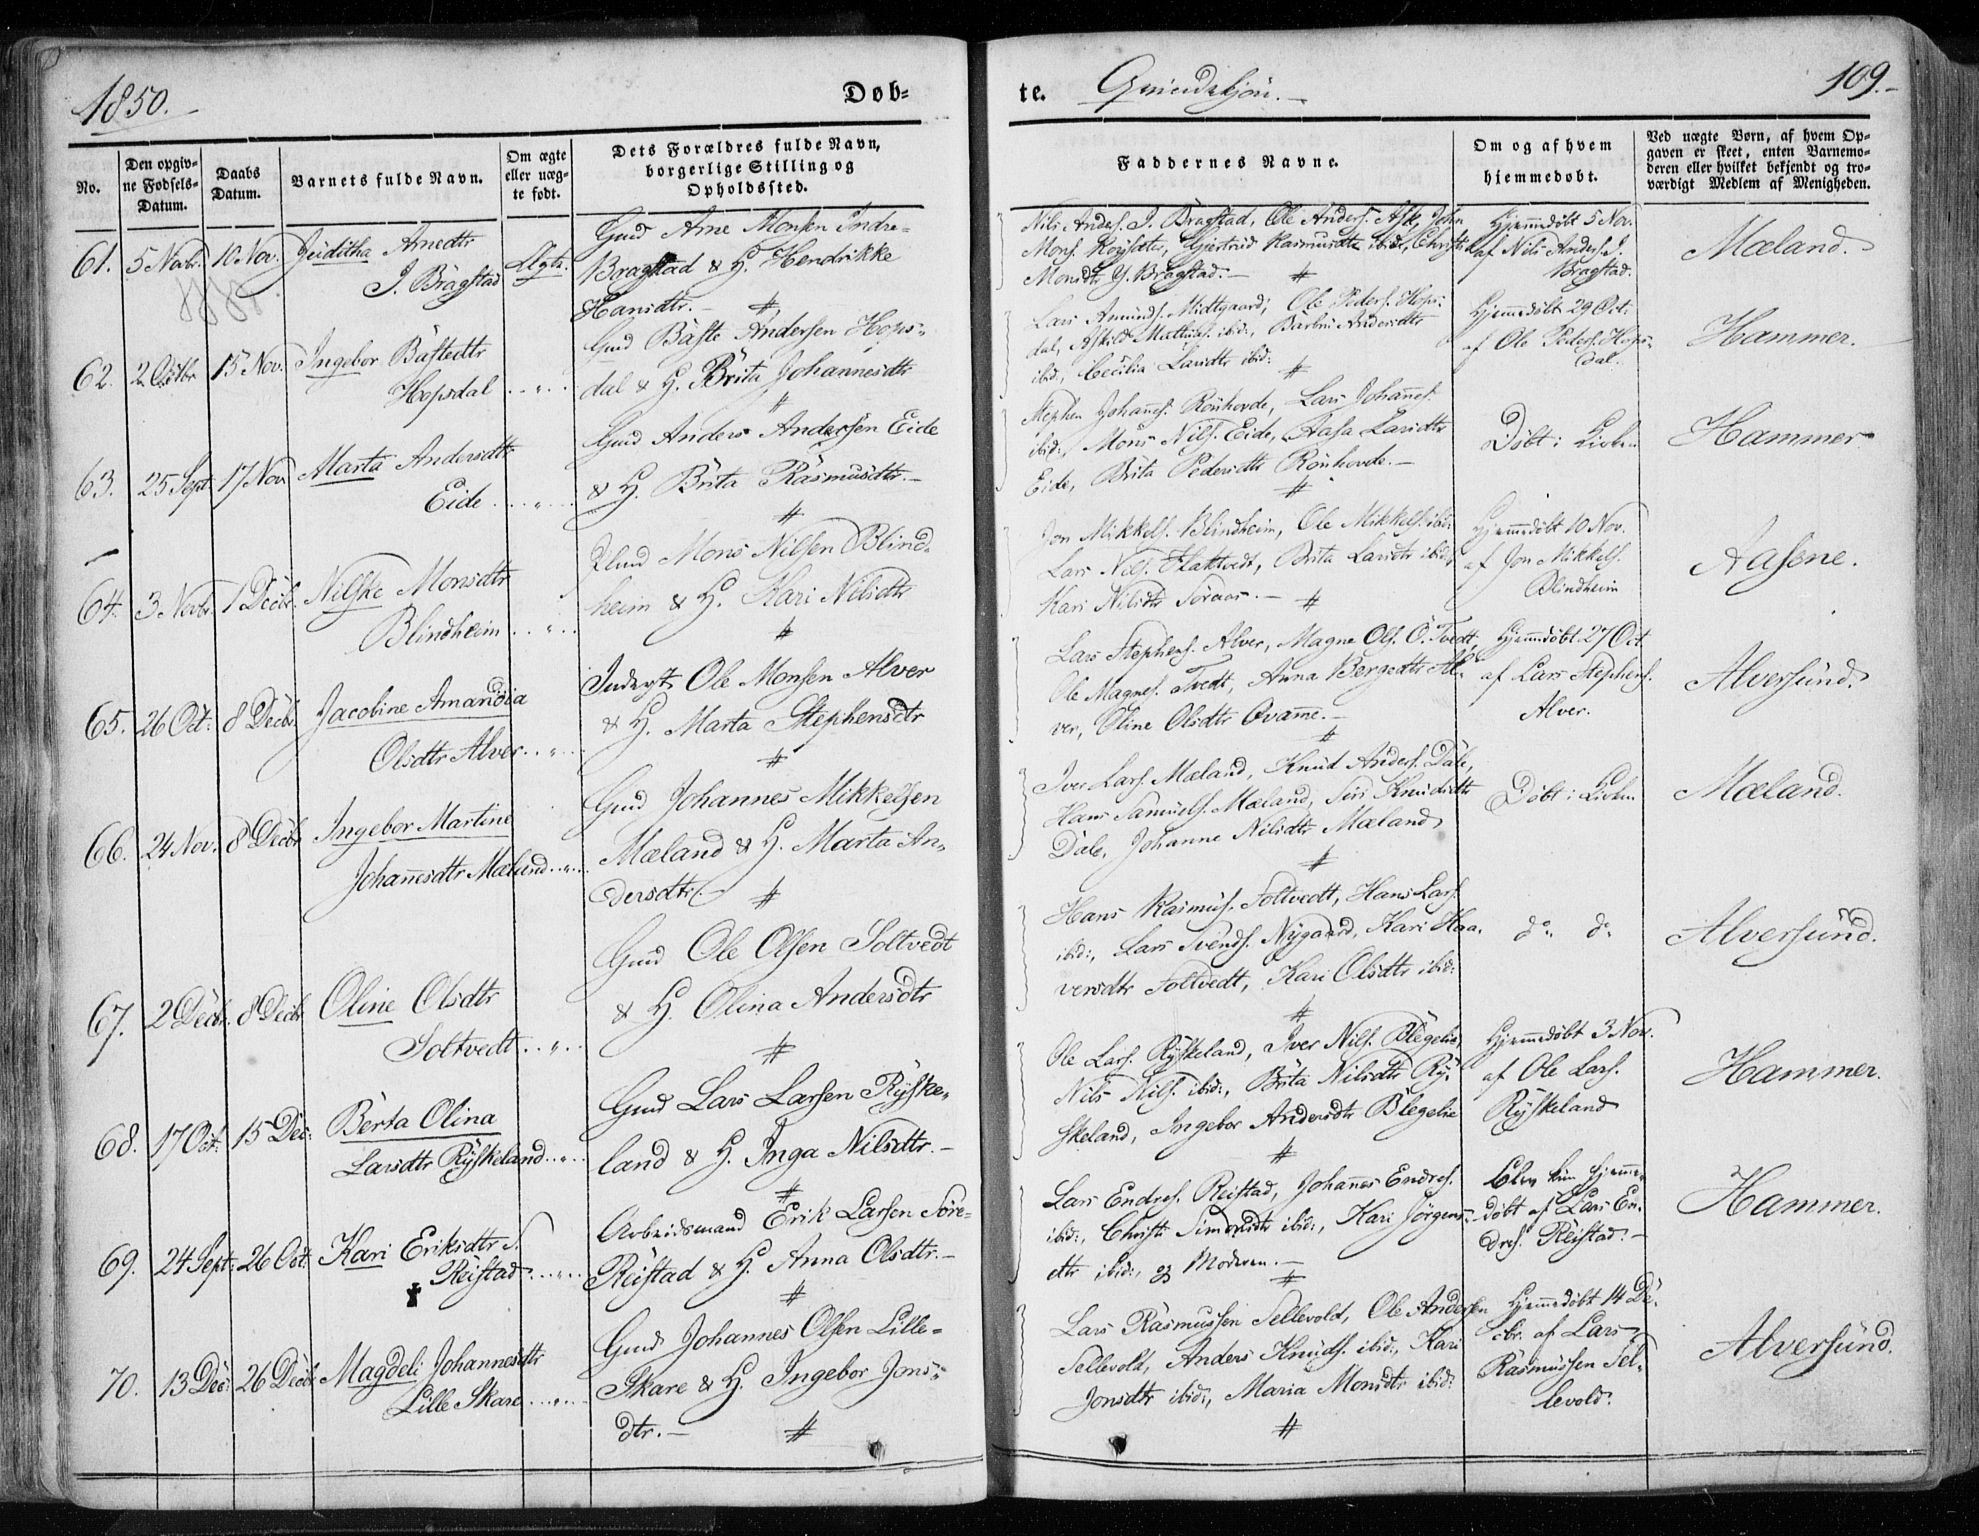 1850.
Døb-
te. Qvindekjøn.
109.
No.
Den opgiv-
ne Fødsels-
Datum.
Daabs
Datum.
Barnets fulde Navn.
Om ægte
eller uæg-
te født.
Dets Forældres fulde Navn,
borgerlige Stilling og
Opholdssted.
Faddernes Navne.
Om og af hvem
hjemmedøbt.
Ved uægte Børn, af hvem Op-
gaven er skeet, enten Barnemo-
deren eller hvilket bekjendt og tro-
værdigt Medlem af Menigheden.
61. 5 Novbr. 10 Nov. Juditha Arnedtr
I. Bragstad
Ægte.
Gmd Arne Monsen Indre-
Bragstad & H. Hendrikke
Hansdtr.
Nils Anders. I. Bragstad, Ole Anders. Ask, John
Mons. Gjertrud Rasmusdtr ibid:, Christi
Monsdtr Y. Bragstad.
Hjemmedøbt 5 Nov.
af Nils Anders. I.
Bragstad.
Mæland.
62. 15 Nov. Ingebor Bastedtr
Hopsdal
Gmd Baste Andersen Hops-
dal & H. Brita Johannesdtr
Lars Amunds. Midtgaard, Ole Peders. Hops-
dal, Askild Matthias. ibid:, Barbru Andersdtr
ibid:, Cecilia Larsdtr ibid:
Hjemmedøbt 29 Oct:
af Ole Peders. Hops-
dal.
Hammer.
63. 25 Sept. 17 Nov Marta Andersdtr
Eide
Gmd Anders Andersen Eide
& H. Brita Rasmusdtr.
Stephen Johannes. Rönhovde, Lars Johannes.
ibid:, Mons Nils. Eide, Aasa Larsdtr
Eide, Brita Pedersdtr Rönhovde.
Døbt i Kirken
Hammer
64. 3 Novbr. 1 Decbr. Nilske Monsdtr
Blindheim
Mons Nilsen Blind-
heim & H. Kari Nilsdtr
Jon Mikkels. Blindheim, Ole Mikkels. ibid:
Lars Nils. Flaktvedt, Brita Larsdtr ibid:,
Kari Nilsdtr Söraas.
Hjemmedøbt 10 Nov.
af Jon Mikkels.
Blindheim
Aasene.
65. 26 Oct: 8 Decbr. Jacobine Amandia
Olsdtr Alver
Inderst Ole Monsen Alver
& H. Marta Stephensdtr
Lars Stephens. Alver, Magne Ols. Ö. Tvedt,
Ole Magnes. Tvedt, Anna Bergedtr Al-
ver, Oline Olsdtr Qvamme.
Hjemmedøbt 27 Oct.
af Lars Stephens.
Alver.
Alversund.
66. 24 Nov. 8 Decbr Ingebor Martine
Johannesdtr Mæland
Gmd Johannes Mikkelsen
Mæland & H. Marta An-
dersdtr.
Iver Lars. Mæland, Knud Anders. Dale,
Hans Samuels. Mæland, Siri Knudsdtr
Dale, Johanne Nilsdtr Mæland
Døbt i Kirken
Mæland.
67. 2 Decbr. 8 Decbr Oline Olsdtr
Soltvedt
Gmd Ole Olsen Soltvedt
& H. Olina Andersdtr
Hans Rasmus. Soltvedt, Hans Lars.
ibid:, Lars Svends. Nygaard, Kari Haa-
versdtr Soltvedt, Kari Olsdtr ibid:
do do
Alversund.
68. 17 Oct. 15 Dec: Berta Olina
Larsdtr Ryskeland
Gmd Lars Larsen Ryske-
land & H. Inga Nilsdtr.
Ole Lars. Ryskeland, Iver Nils. Blegelie,
Nils Nils. ibid:, Brita Nilsdtr Ry-
skeland, Ingebor Andersdtr Blegelie
Hjemmedøbt 3 Nov.
af Ole Lars.
Ryskeland
Hammer.
69. 24 Sept: 26 Oct: Kari Eriksdtr S.
Reistad
Arbeidsmand Erik Larsen Söre-
Reistad & H. Anna Olsdtr.
Lars Endres. Reistad, Johannes Endres.
ibid:, Christi Simonsdtr ibid:, Kari Jörgens-
dtr ibid:, og Moderen.
Blev kun hjemme-
døbt af Lars En-
dres. Reistad.
Hammer.
70. 13 Dec: 26 Decbr Magdeli Johannesdtr
Lille Skare
Gmd Johannes Olsen Lille-
Skare & H. Ingebor Jons-
dtr.
Lars Rasmussen Sellevold, Ole Andersen
Sellevold, Anders Knuds. ibid:, Kari
Jonsdtr ibid:, Maria Monsdtr ibid:
Hjemmedøbt 14 De-
cbr. af Lars
Rasmussen Sel-
levold.
Alversund.